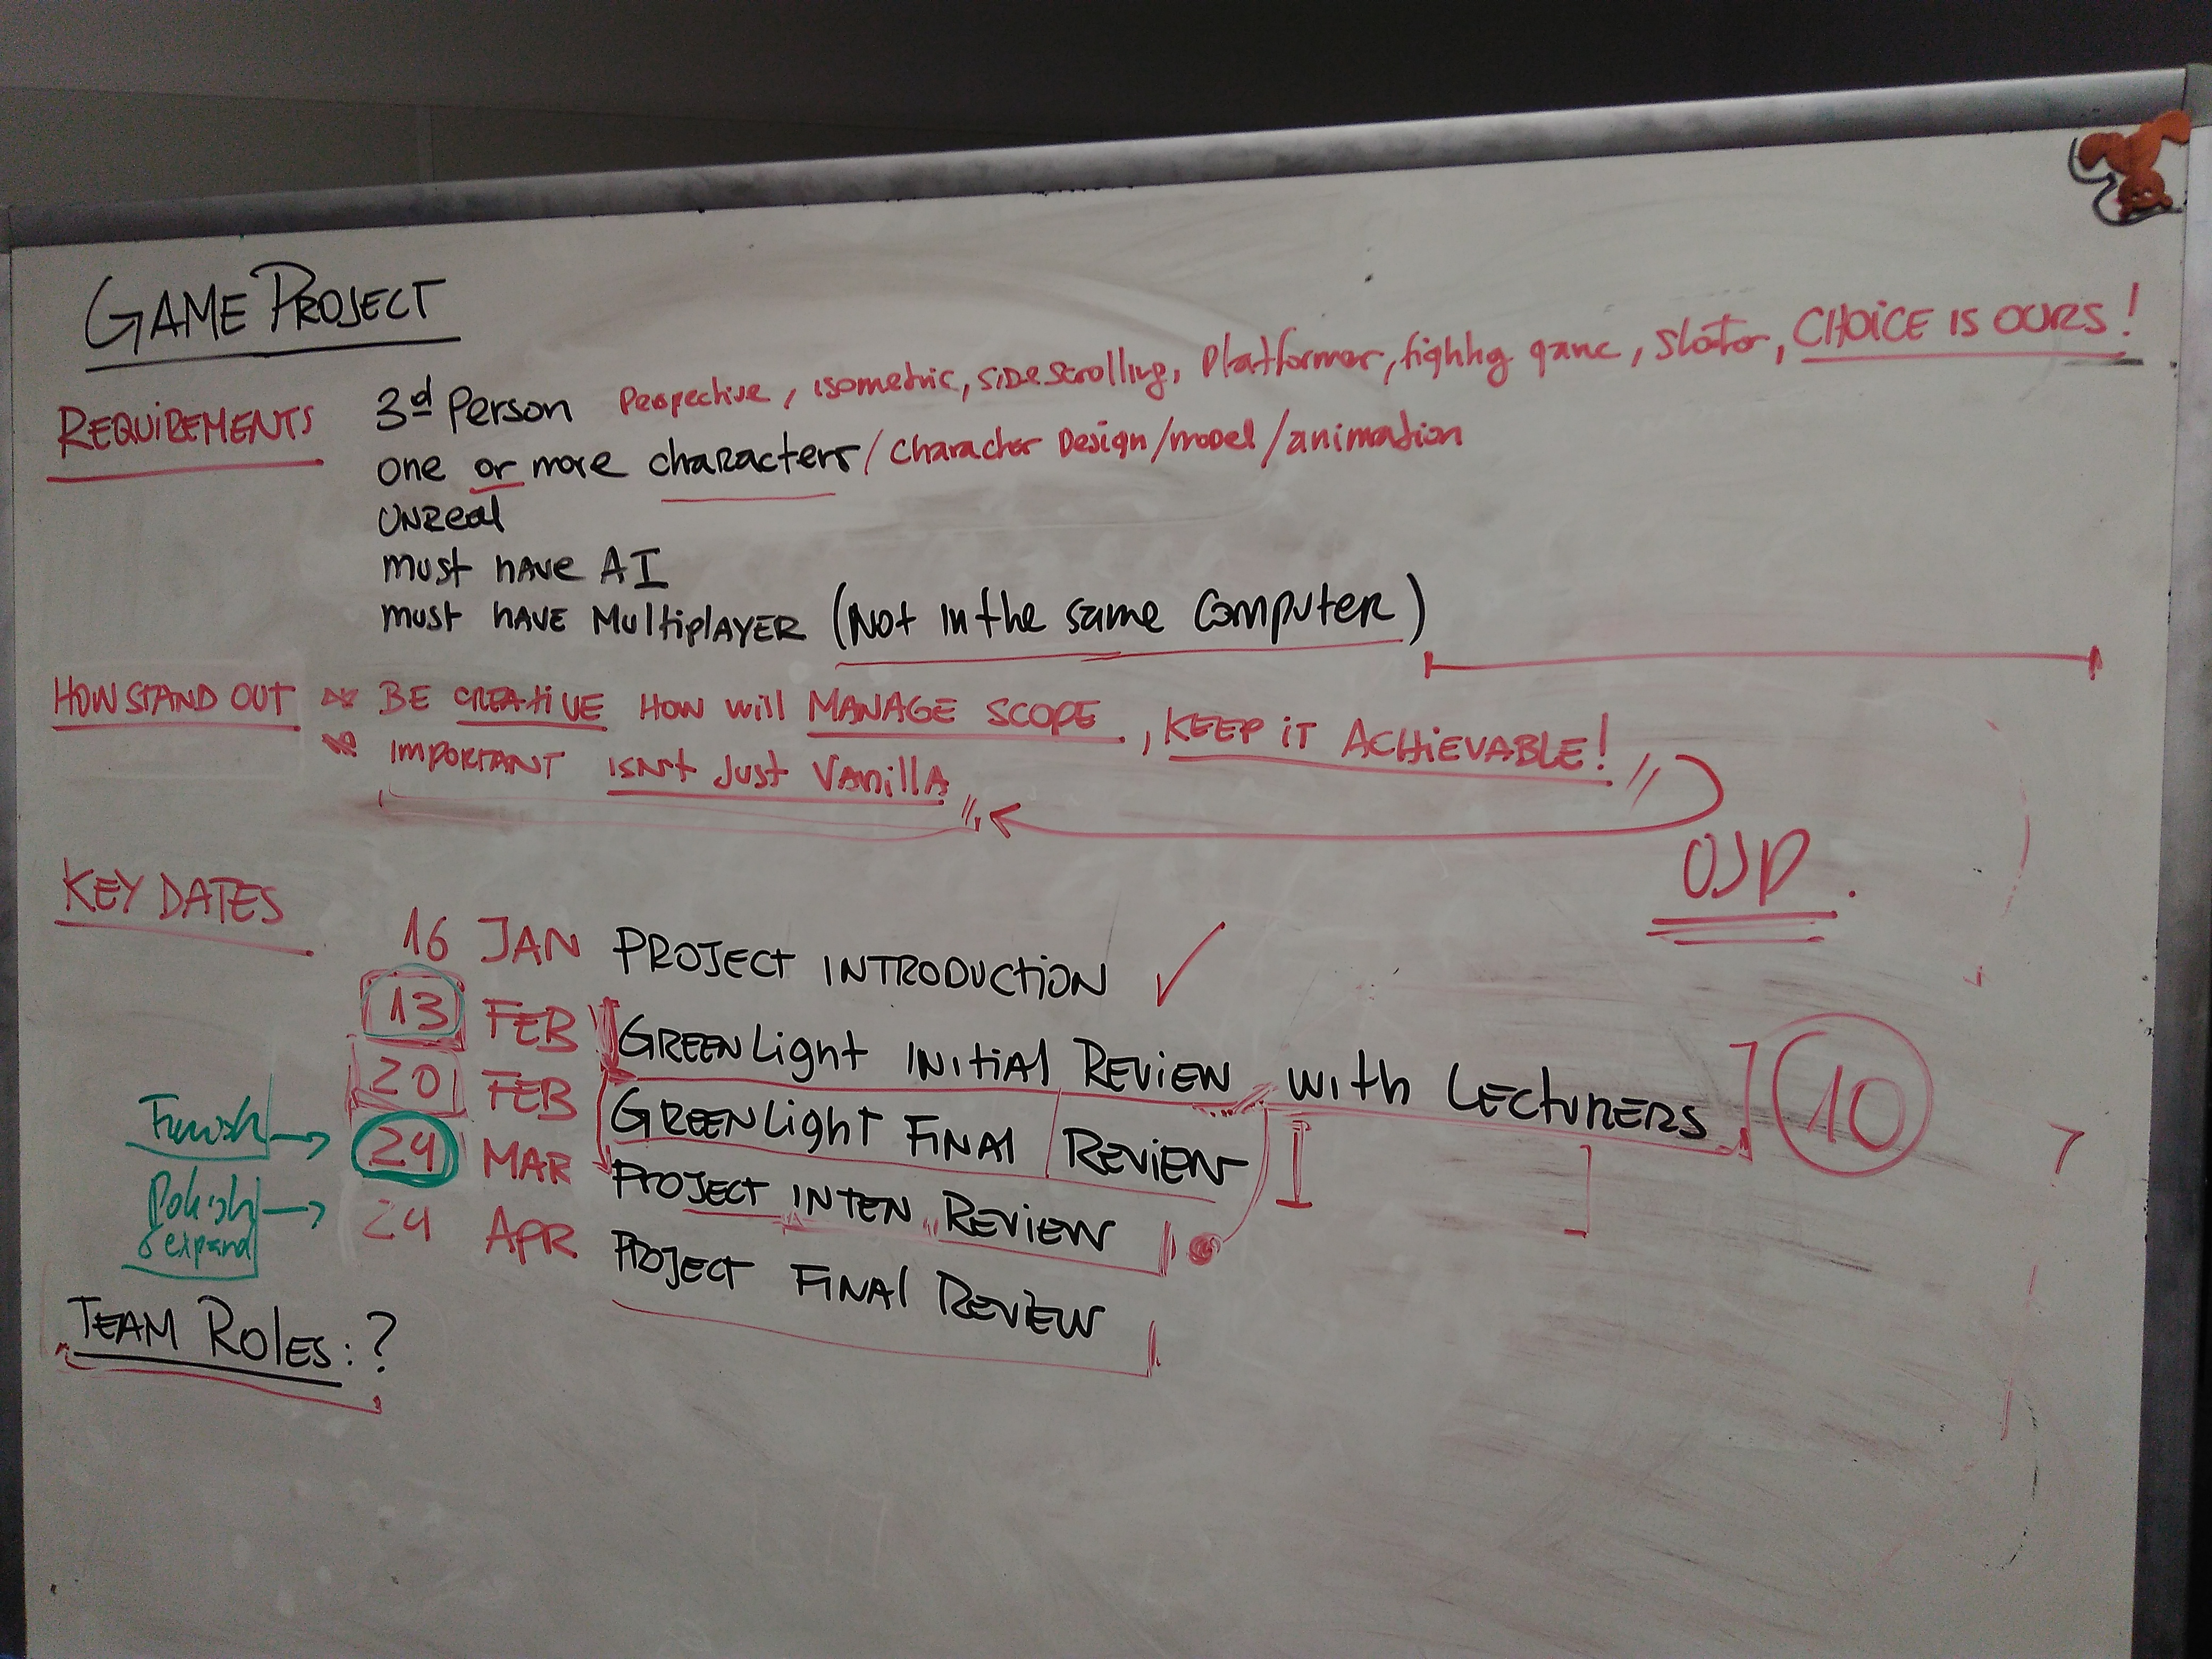 GAME PROJECT
REQUIREMENTS 3rd Person Perspective, isometric, side scrolling, Platformer, fighting game, CHOICE IS OURS!
one or more characters / character Design / model / animation
UNREAL
must have AI
must have Multiplayer (Not in the same computer)
HOW STAND OUT BE CREATIVE HOW will MANAGE SCOPE, KEEP IT ACHIEVABLE!
IMPORTANT ISN't Just VANILLA
KEY DATES
16 JAN PROJECT INTRODUCTION ✓
13 FEB GREENLight INITIAL REVIEW with LECTURERS 10
20 FEB GREENLight FINAL REVIEW
Finish → 24 MAR PROJECT INTEN REVIEW
Polish & expand → 24 APR PROJECT FINAL REVIEW
TEAM ROLES: ?